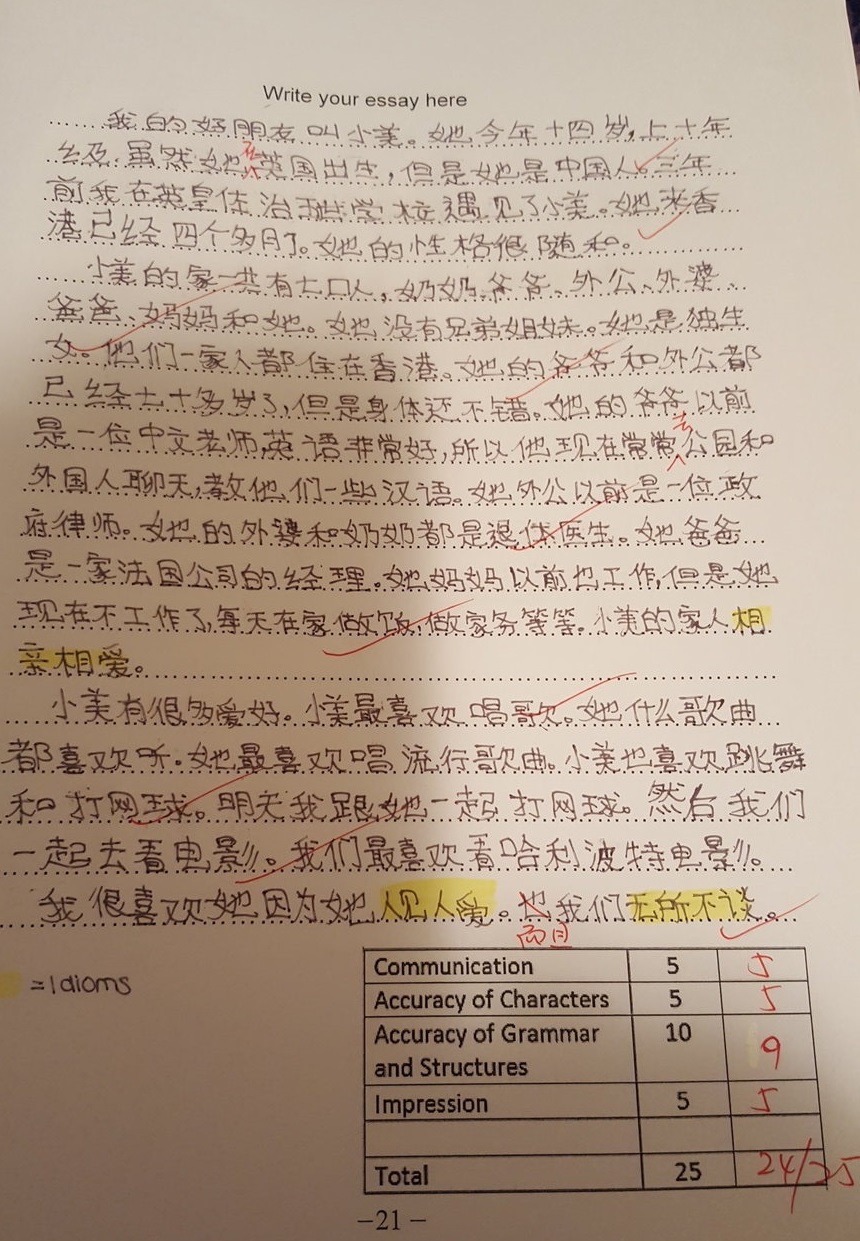 Write your essay here
我的好朋友叫小美。她今年十四岁,上十年
级。虽然她在英国出生,但是她是中国人。三年
前我在英皇佐治五世学校遇见了小美。她来香
港已经四个多月了。她的性格很随和。
小美的家一共有七口人,奶奶、爷爷、外公、外婆
爸爸、妈妈和她。她没有兄弟姐妹。她是独生
女。他们一家人都住在香港。她的爷爷和外公都
已经七十多岁了,但是身体还不错。她的爷爷以前
是一位中文老师,英语非常好,所以他现在常常去公园和
外国人聊天,教他们一些汉语。她外公以前是一位政
府律师。她的外婆和奶奶都是退休医生。她爸爸
是一家法国公司的经理。她妈妈以前也工作,但是她
现在不工作了,每天在家做饭,做家务等等。小美的家人相
亲相爱。
小美有很多爱好。小美最喜欢唱歌。她什么歌曲
都喜欢听。她最喜欢唱流行歌曲。小美也喜欢跳舞
和打网球。明天我跟她一起打网球。然后我们
一起去看电影。我们最喜欢看哈利波特电影。
我很喜欢她因为她人见人爱。也我们无所不谈。
而且
=Idioms
Communication 5 5
Accuracy of Characters 5 5
Accuracy of Grammar 10 9
and Structures
Impression 5 5
Total 25 24/25
-21-